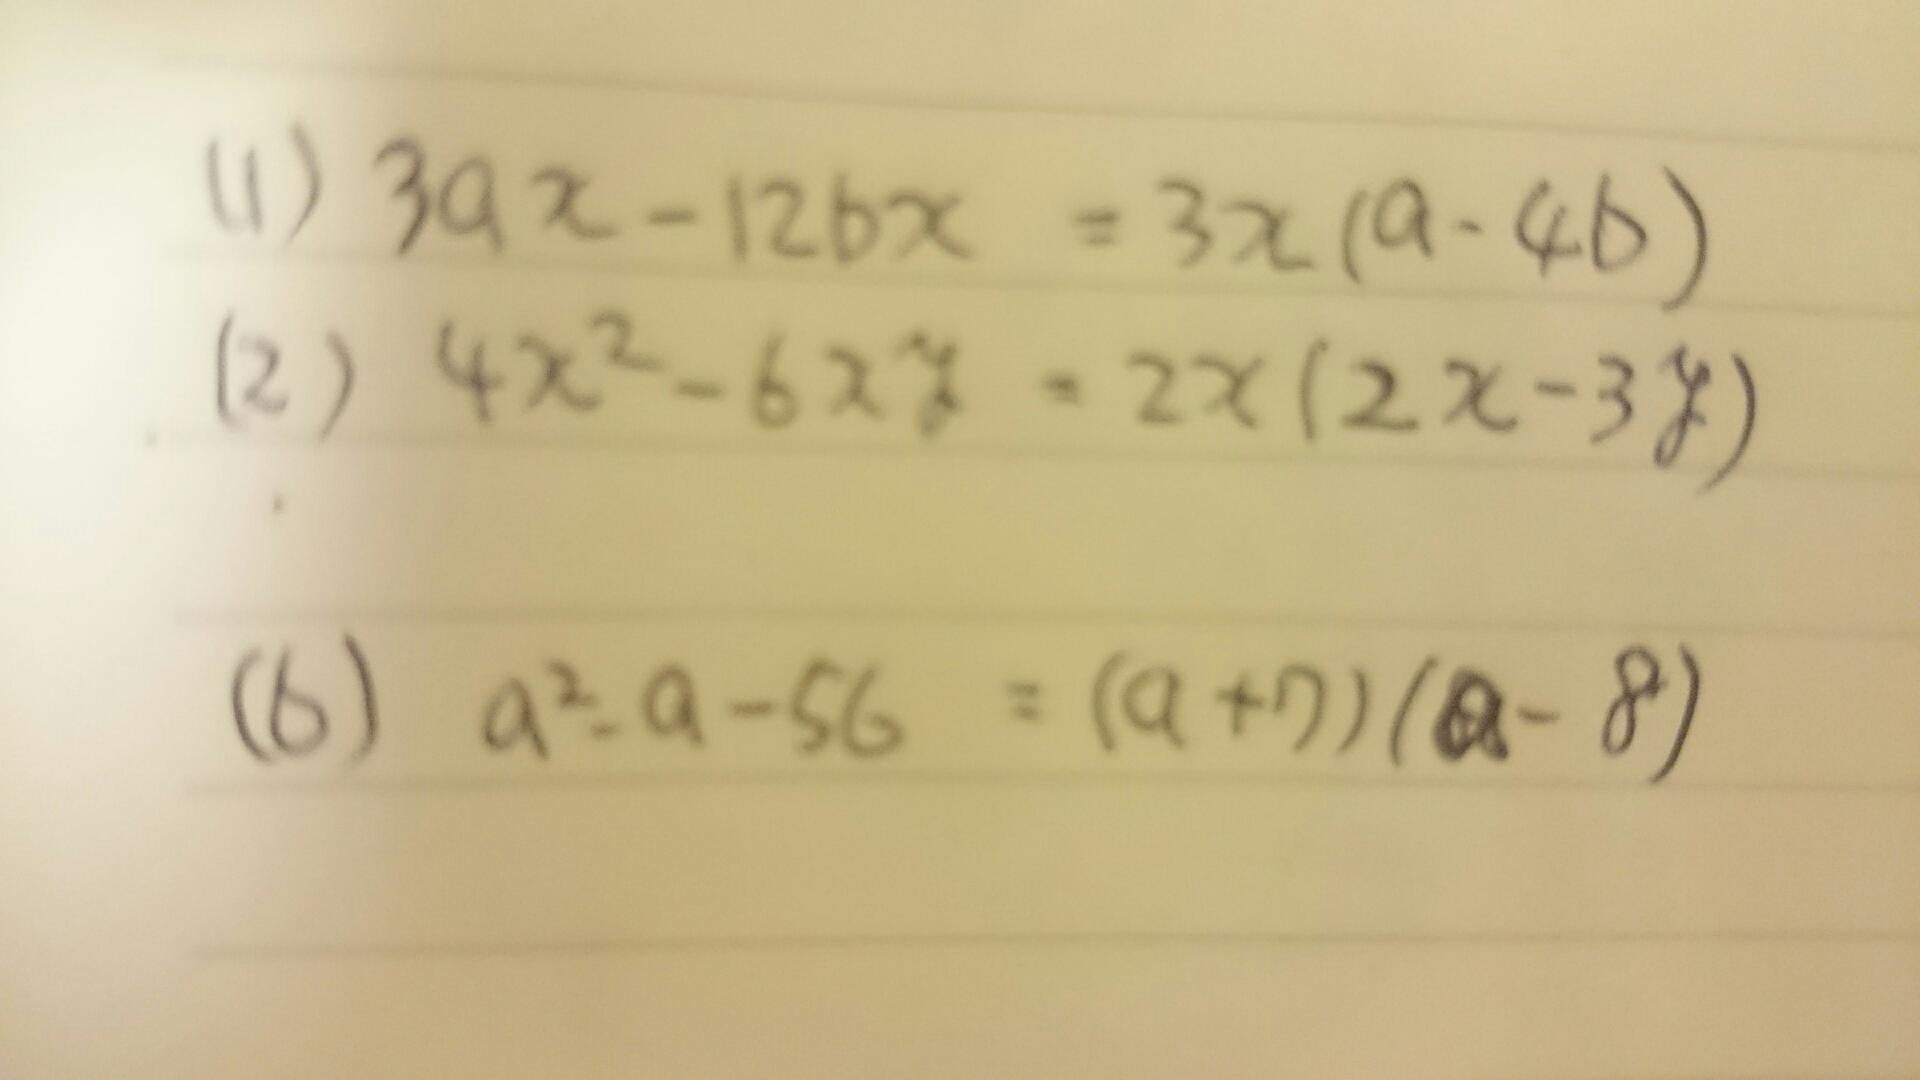 (1) 3ax-12bx = 3x(a-4b)
(2) 4x²-6xy = 2x(2x-3y)
(6) a²-a-56 = (a+7)(a-8)